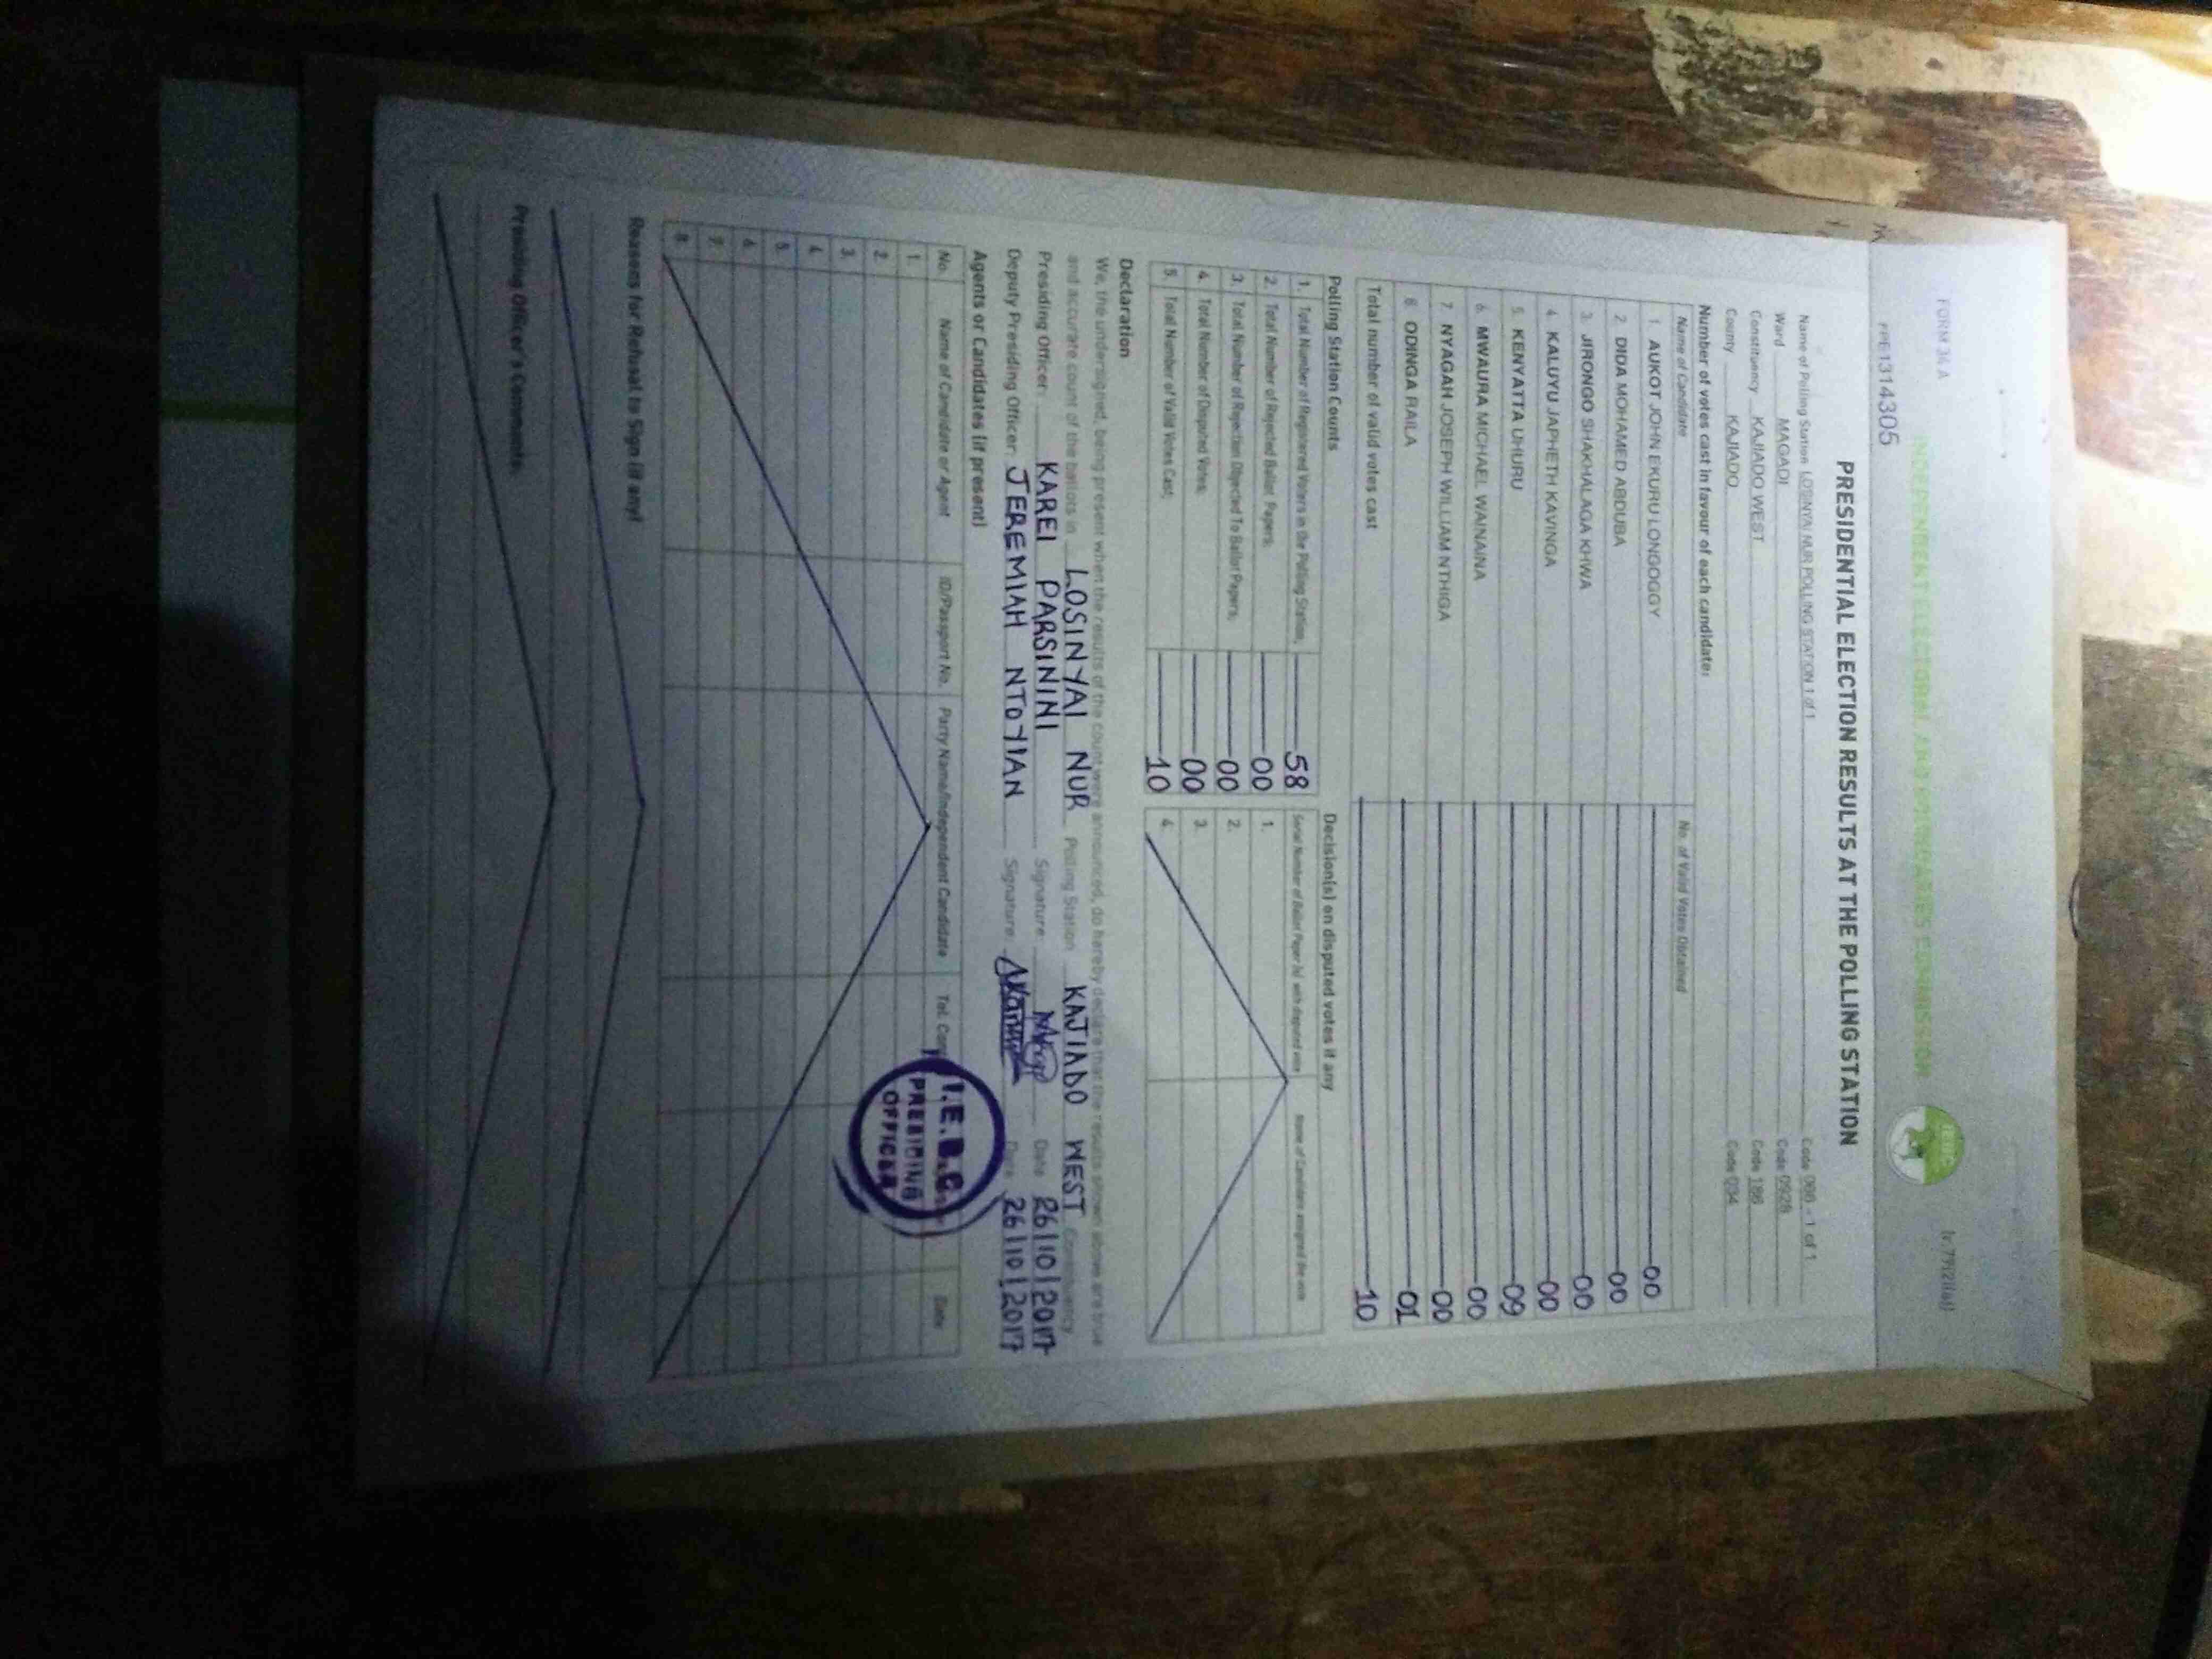 FORM 34 A
INDEPENDENT ELECTORAL AND BOUNDARIES COMMISSION
IEBC
PPE1314305
PRESIDENTIAL ELECTION RESULTS AT THE POLLING STATION
Name of Polling Station LOSINYAI NUR POLLING STATION 1 of 1 Code 080 - 1 of 1
Ward MAGADI Code 0928
Constituency KAJIADO WEST Code 186
County KAJIADO Code 034
Number of votes cast in favour of each candidate:
Name of Candidate No. of Valid Votes Obtained
1. AUKOT JOHN EKURU LONGOGGY 00
2. DIDA MOHAMED ABDUBA 00
3. JIRONGO SHAKHALAGA KHWA 00
4. KALUYU JAPHETH KAVINGA 00
5. KENYATTA UHURU 09
6. MWAURA MICHAEL WAINAINA 00
7. NYAGAH JOSEPH WILLIAM NTHIGA 00
8. ODINGA RAILA 01
Total number of valid votes cast 10
Polling Station Counts Decision(s) on disputed votes if any
1. Total Number of Registered Voters in the Polling Station; 58 Serial Number of Ballot Paper (s) with disputed votes Name of Candidate assigned the vote
2. Total Number of Rejected Ballot Papers; 00 1.
3. Total Number of Rejection Objected To Ballot Papers; 00 2.
4. Total Number of Disputed Votes; 00 3.
5. Total Number of Valid Votes Cast; 10 4.
Declaration
We, the undersigned, being present when the results of the count were announced, do hereby declare that the results shown above are true
and accurate count of the ballots in LOSINYAI NUR Polling Station KAJIADO WEST Constituency
Presiding Officer: KAREI PARSININI Signature: Date 26/10/2017
Deputy Presiding Officer: JEREMIAH NTOYIAN Signature: Date 26/10/2017
Agents or Candidates (if present)
No. Name of Candidate or Agent ID/Passport No. Party Name/Independent Candidate Tel. Date
I.E.B.C.
PRESIDING
OFFICER
1.
2.
3.
4.
5.
6.
7.
8.
Reasons for Refusal to Sign (if any)
Presiding Officer's Comments.